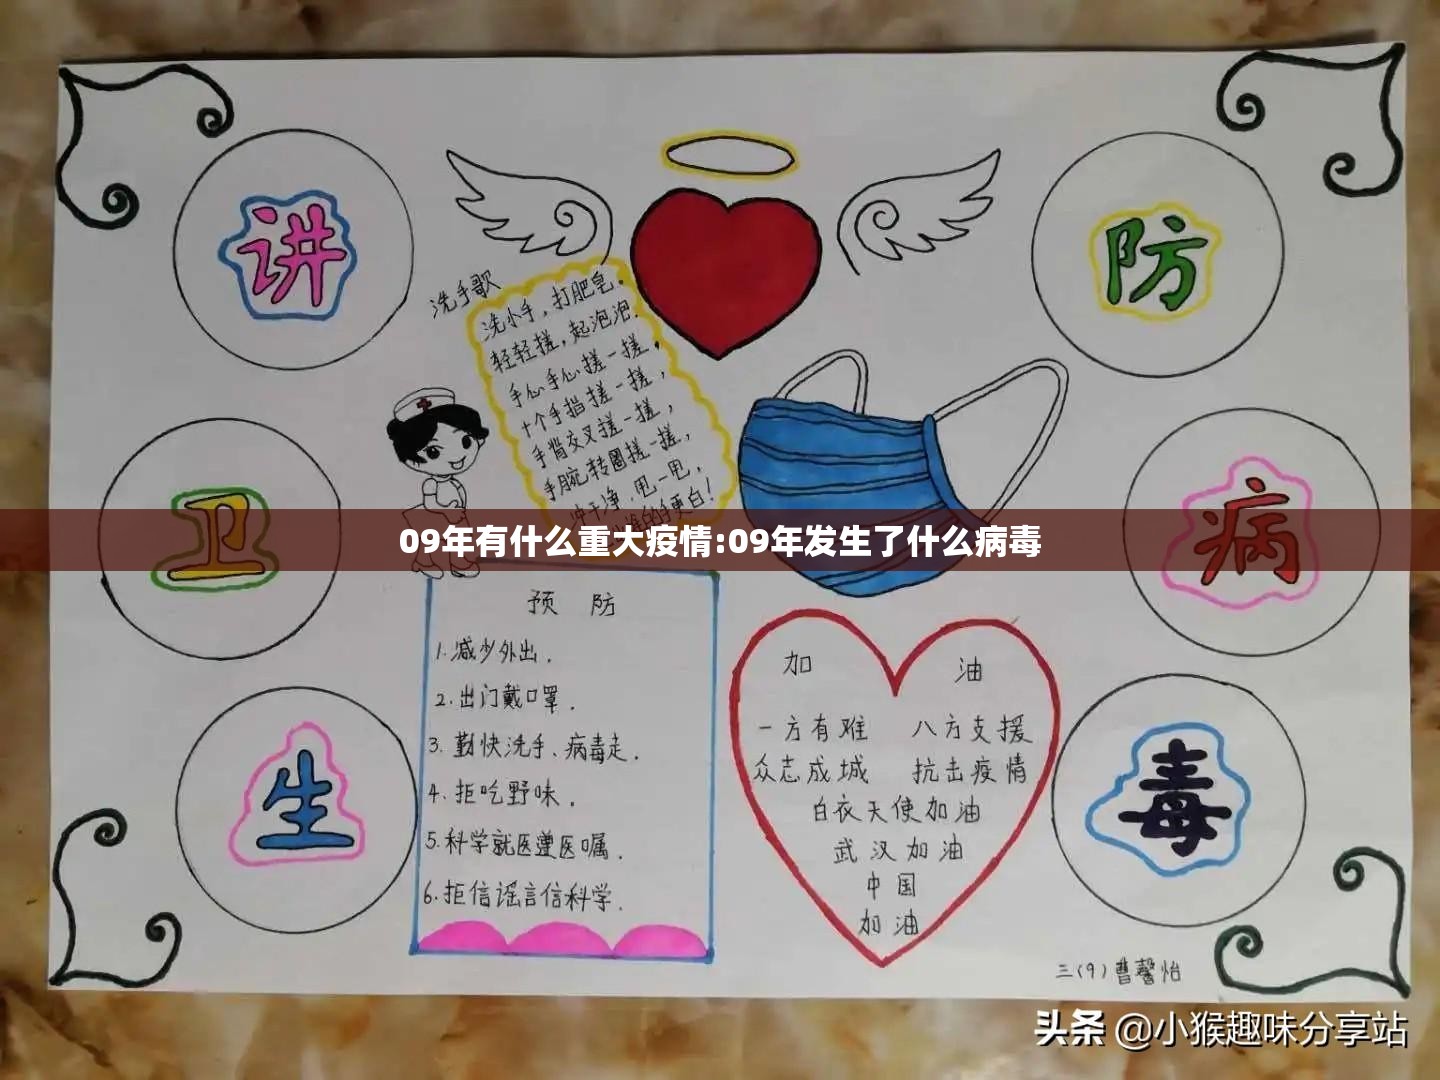 讲
卫
生
防
病
毒
洗手歌
洗小手,打肥皂。
轻轻搓,起泡泡.
手心手心搓一搓,
十个手指搓一搓,
手背交叉搓一搓,
手腕转圈搓一搓,
冲干净,甩一甩,
的手更白!
09年有什么重大疫情:09年发生了什么病毒
预 防
1.减少外出.
2.出门戴口罩.
3.勤快洗手、病毒走.
4.拒吃野味.
5.科学就医遵医嘱.
6.拒信谣言信科学.
加 油
一方有难 八方支援
众志成城 抗击疫情
白衣天使加油
武汉加油
中国
加油
三(9)曹馨怡
头条 @小猴趣味分享站